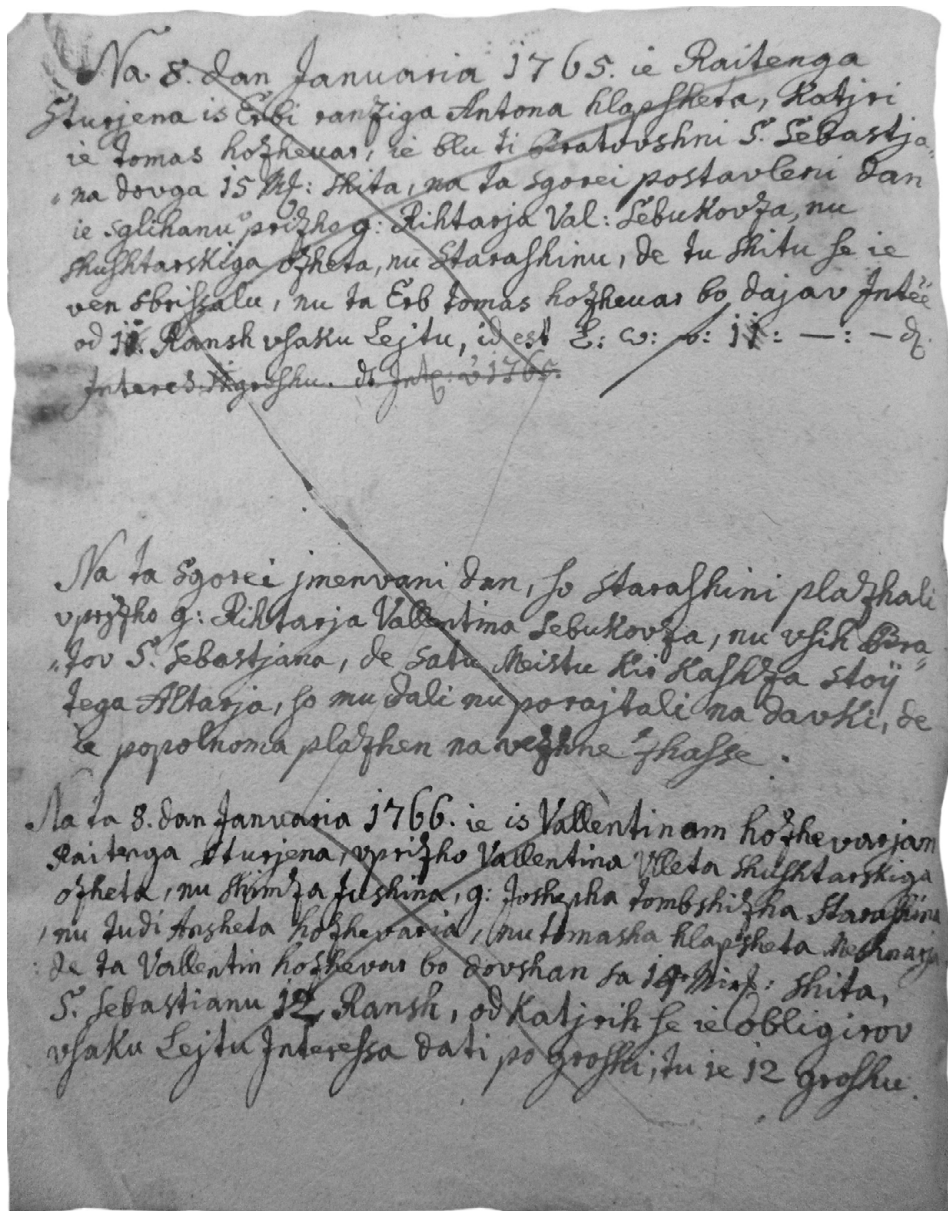 Na 8. dan Januaria 1765. ie Raitenga
Sturjena is Erbi ranziga Antona klapsheta, Katjri
ie tomas hozhevar, ie blu ti Bratovshni S. Sebastja„
„na dovga 15 Mſ: shita, na ta sgorei postavleni dan
ie sglihanu prizho g: Rihtarja Val: Sebukovza, nu
shushtarskiga ozheta, nu Starashinu, de tu shitu se ie
ven sbrissalu, nu ta Erb tomas hozhevar bo dajav
od 11 Ransh vsaku Lejtu, id est
Interes
Na ta sgorei jmenvani dan, so starashini plazhali
vprizho g: Rihtarja Vallentina Sebukovza, nu vsih Bra„
„tov S. Sebastjana, de satu Meistu Kir Kashza stoÿ
tega Altarja, so mu dali nu porajtali na davki, de
ie popolnoma plazhen na vezhne zhasse.
Na ta 8. dan Januaria 1766. ie is Vallentinam hozhevarjam
Raitenga sturjena, vprizho Vallentina Vlleta shushtarskiga
ozheta, nu shimza Jushina, g: Joshepha tombshizha Starashinu
, nu tudi Ansheta hozhevaria, nu tomasha klapsheta
: de ta Vallentin hozhevar bo dovshan sa 14 Mirſ: shita,
S. Sebastianu 12 Ransh, od Katjrih se ie obligirov
vsaku Lejtu Interessa dati po groshi, tu ie 12 groshu.